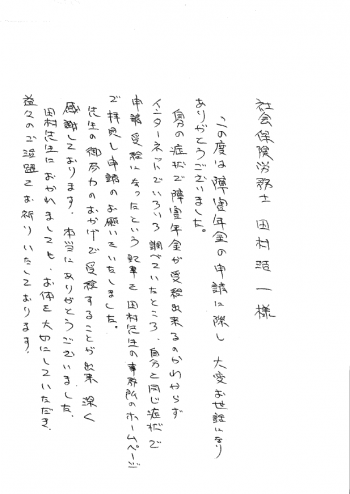 社会保険労務士 田村浩一様
この度は障害年金の申請に際し 大変お世話になり
ありがとうございました。
自分の症状で障害年金が受給出来るのかわからず
インターネットでいろいろ調べていたところ、自分と同じ症状で
申請受給になったという記事を田村先生の事務所のホームページで
ご拝見し申請のお願いをいたしました。
先生の御尽力のおかげで受給することが出来 深く
感謝しております。本当にありがとうございました。
田村先生におかれましても、お体を大切にしていただき、
益々のご活躍をお祈りいたしております。